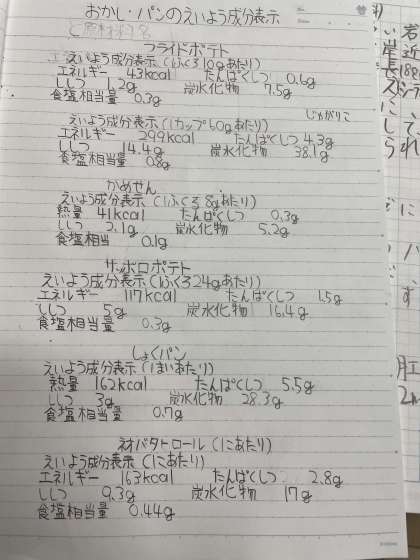 おかし・パンのえいよう成分表示
と原材料名
フライドポテト
えいよう成分表示(1ふくろ10gあたり)
エネルギー 43kcal たんぱくしつ 0.6g
ししつ 1.2g 炭水化物 7.5g
食塩相当量 0.3g
じゃがりこ
えいよう成分表示(1カップ60gあたり)
エネルギー 299kcal たんぱくしつ 4.3g
ししつ 14.4g 炭水化物 38.1g
食塩相当量 0.8g
かめせん
えいよう成分表示(1ふくろ8gあたり)
熱量 41kcal たんぱくしつ 0.3g
ししつ 2.1g 炭水化物 5.2g
食塩相当 0.1g
サッポロポテト
えいよう成分表示(1ふくろ24gあたり)
エネルギー 117kcal たんぱくしつ 1.5g
ししつ 5g 炭水化物 16.4g
食塩相当量 0.3g
しょくパン
えいよう成分表示(1まいあたり)
熱量 162kcal たんぱくしつ 5.5g
ししつ 3g 炭水化物 28.3g
食塩相当量 0.7g
ネオバタトロール(1こあたり)
えいよう成分表示(1こあたり)
エネルギー 163kcal たんぱくしつ 2.8g
ししつ 9.3g 炭水化物 17g
食塩相当量 0.44g